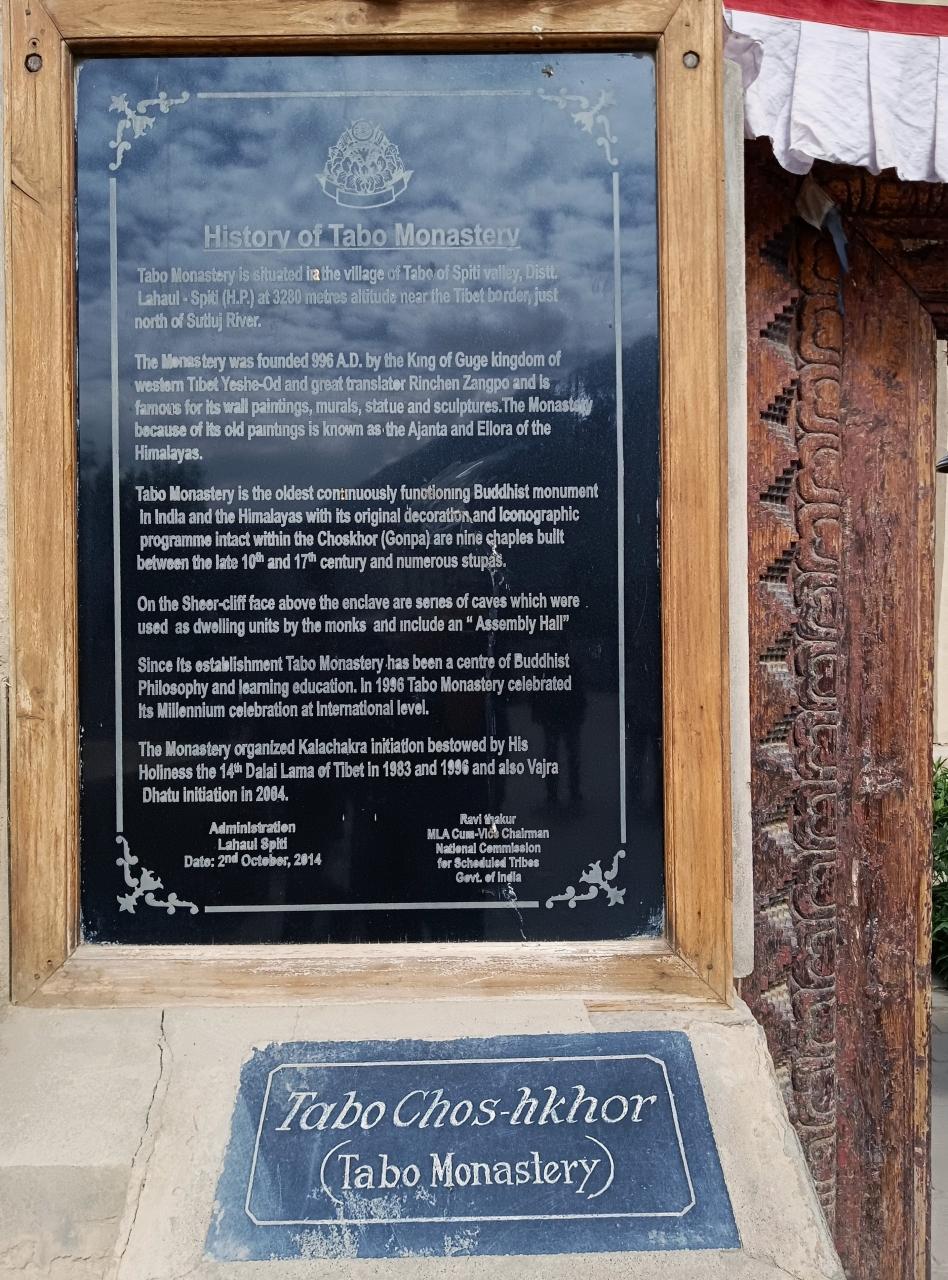 History of Tabo Monastery
Tabo Monastery is situated in the village of Tabo of Spiti valley, Distt.
Lahaul - Spiti (H.P.) at 3280 metres altitude near the Tibet border, just
north of Sutluj River.
The Monastery was founded 996 A.D. by the King of Guge kingdom of
western Tibet Yeshe-Od and great translator Rinchen Zangpo and is
famous for its wall paintings, murals, statue and sculptures.The Monastery
because of its old paintings is known as the Ajanta and Ellora of the
Himalayas.
Tabo Monastery is the oldest continuously functioning Buddhist monument
in India and the Himalayas with its original decoration and Iconographic
programme intact within the Choskhor (Gonpa) are nine chaples built
between the late 10th and 17th century and numerous stupas.
On the Sheer-cliff face above the enclave are series of caves which were
used as dwelling units by the monks and include an “ Assembly Hall”
Since its establishment Tabo Monastery has been a centre of Buddhist
Philosophy and learning education. In 1996 Tabo Monastery celebrated
its Millennium celebration at International level.
The Monastery organized Kalachakra initiation bestowed by His
Holiness the 14th Dalai Lama of Tibet in 1983 and 1996 and also Vajra
Dhatu initiation in 2004.
Administration
Lahaul Spiti
Date: 2nd October, 2014
Ravi thakur
MLA Cum-Vice Chairman
National Commission
for Scheduled Tribes
Govt. of India
Tabo Chos-hkhor
(Tabo Monastery)